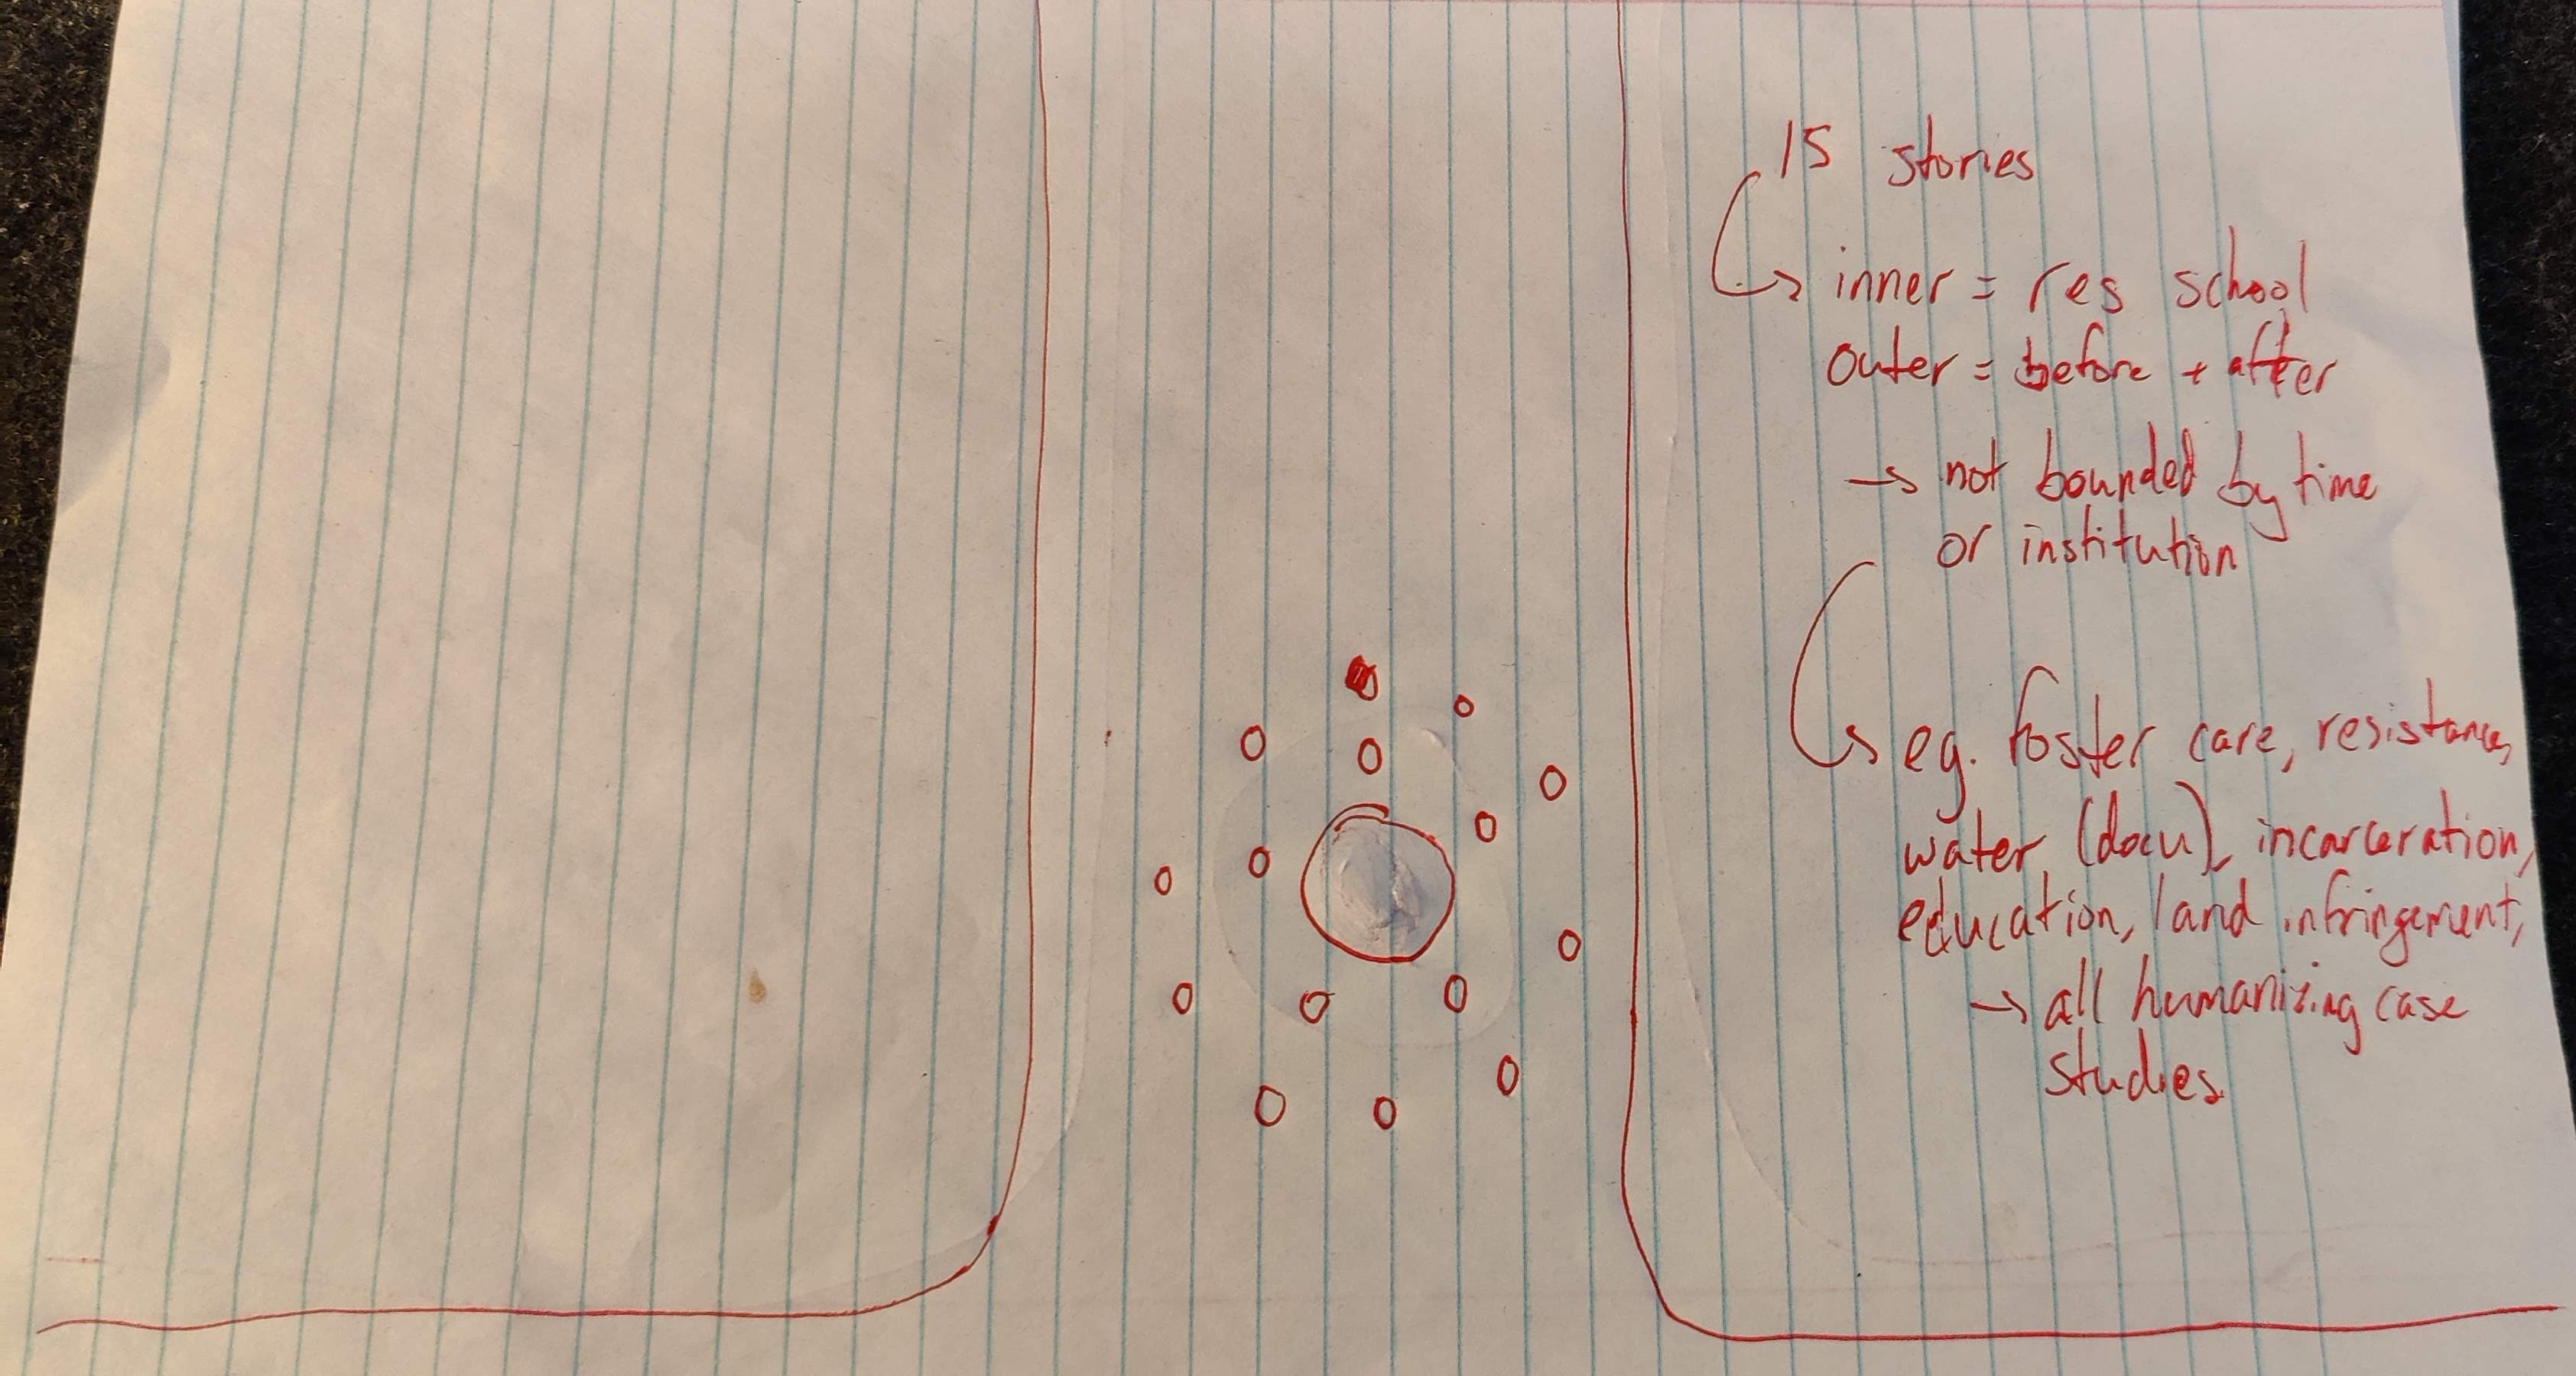 15 stories
→ inner = res school
outer = before + after
→ not bounded by time
or institution
→ eg. foster care, resistance,
water (docu), incarceration,
education, land infringement,
→ all humanizing case
studies